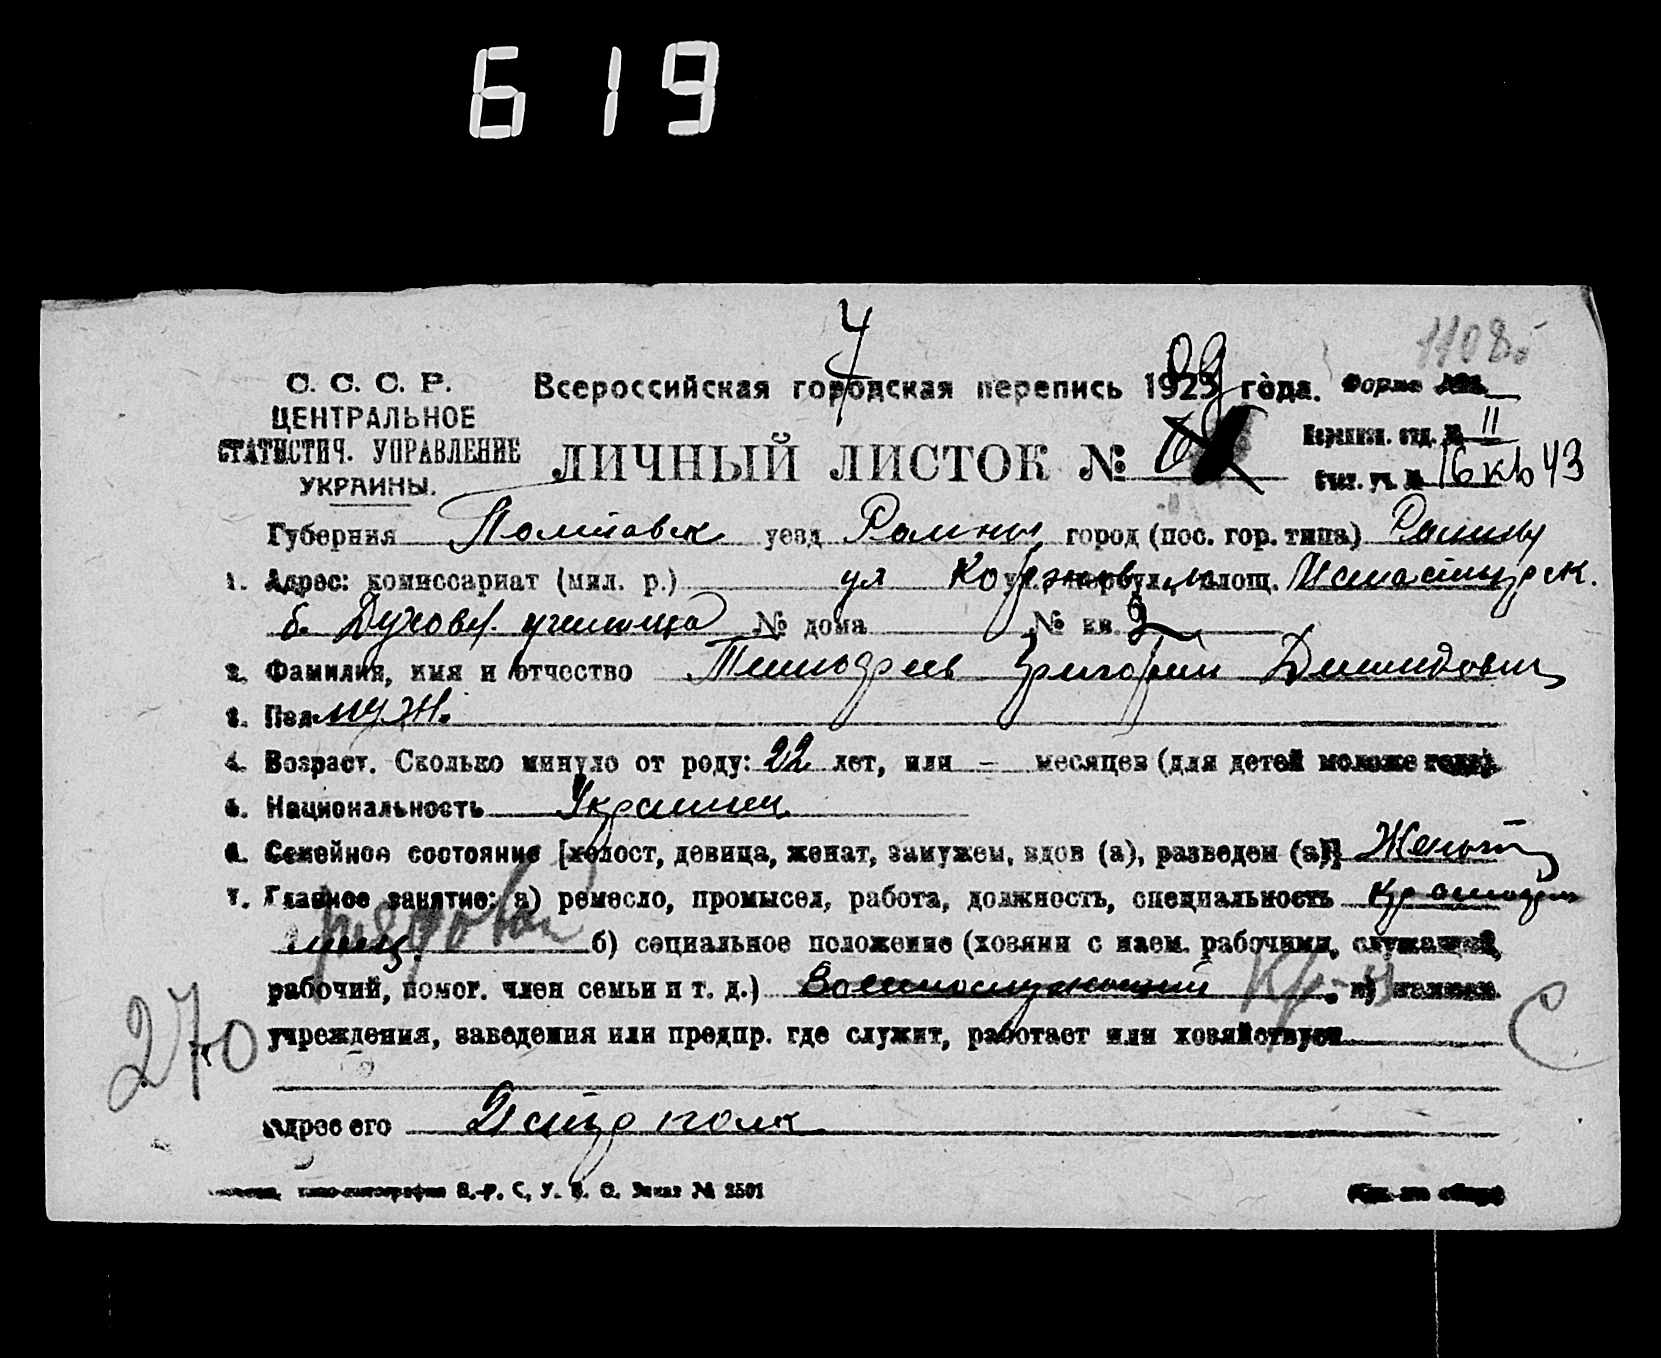 619
4
1108
С. С. С. Р.
ЦЕНТРАЛЬНОЕ
СТАТИСТИЧ. УПРАВЛЕНИЕ
УКРАИНЫ.
Всероссийская городская перепись 1923 года. Форма
89
ЛИЧНЫЙ ЛИСТОК №
Переписн. отд. № II
Счет. уч. № 16 кв 43
Губерния Полтавск уезд Ромны город (пос. гор. типа) Ромны
1. Адрес: комиссариат (мил. р.) ул площ.
б. Духовн. училища № дома № кв 2
2. Фамилия, имя и отчество Григорий Демидович
3. Пол муж.
4. Возраст. Сколько минуло от роду: 22 лет, или – месяцев (для детей моложе года).
5. Национальность Украинец
6. Семейное состояние [холост, девица, женат, замужем, вдов (а), разведен (а)] Женат
7. Главное занятие: а) ремесло, промысел, работа, должность, специальность Красноарм
еец. рядовой б) социальное положение (хозяин с наем. рабочими, служащий,
рабочий, помог. член семьи и т. д.) Военнослужащий в)
учреждения, заведения или предпр. где служит, работает или хозяйствует
270
С
адрес его полк
В.-Р. С, У. В. О. Заказ № 2501